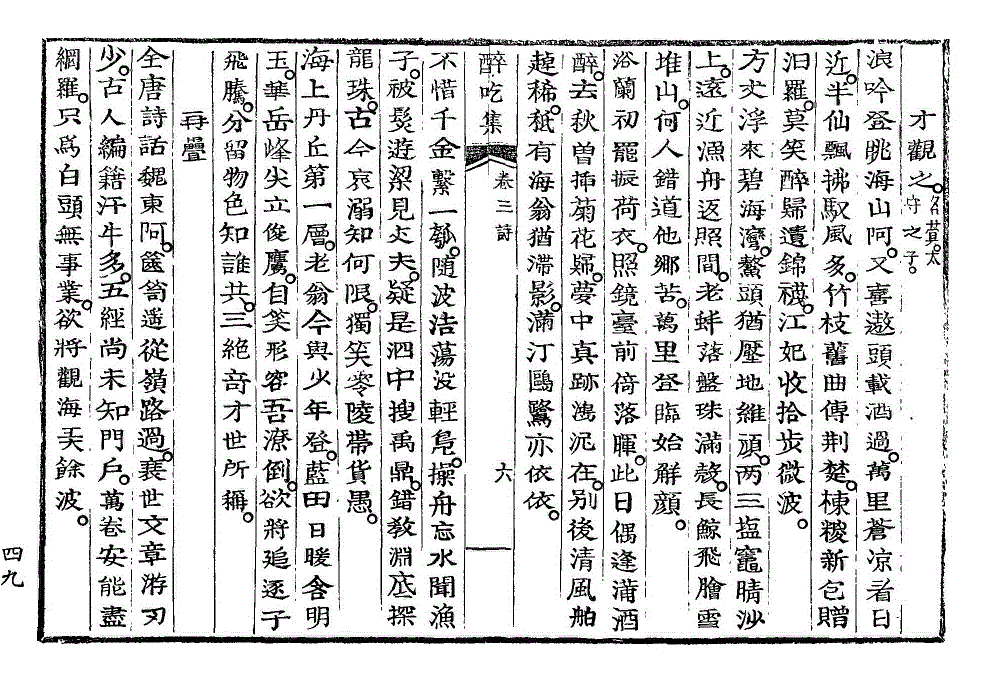 才觀之。名蕡。太守之子。
浪吟登眺海山阿。又喜遨頭載酒過。萬里蒼凉看日
近。半仙飄拂馭風多。竹枝舊曲傳荆楚。棟糉新包贈
汨羅。莫笑醉歸遺錦襪。江妃收拾步微波。
方丈浮來碧海灣。鰲頭猶壓地維頑。两三塩竈晴沙
上。遠近漁舟返照間。老蚌落盤珠滿殼。長鯨飛膾雪
堆山。何人錯道他鄉苦。萬里登臨始解顔。
浴蘭初罷振荷衣。照鏡臺前倚落暉。此日偶逢蒲酒
醉。去秋曽揷菊花歸。夢中真跡鴻泥在。别後清風舶
趠稀。秪有海翁猶滯影。滿汀鷗鷺亦依依。
醉吃集
卷三詩
六
不惜千金繫一瓠。随波浩蕩没輕鳬。操舟忘水聞漁
子。被髮遊梁見丈夫。疑是泗中搜禹鼎。錯教淵底探
龍珠。古今哀溺知何限。獨笑零陵帶貨愚。
海上丹丘第一層。老翁今與少年登。藍田日暖含明
玉。華岳峰尖立俊鷹。自笑形容吾潦倒。欲將追逐子
飛騰。分留物色知誰共。三絶竒才世所稱。
再疊
全唐詩話魏東阿。篋笥遥從嶺路過。衰世文章游刃
少。古人編籍汗牛多。五經尚未知門戶。萬卷安能盡
網羅。只爲白頭無事業。欲將觀海羙餘波。
四九